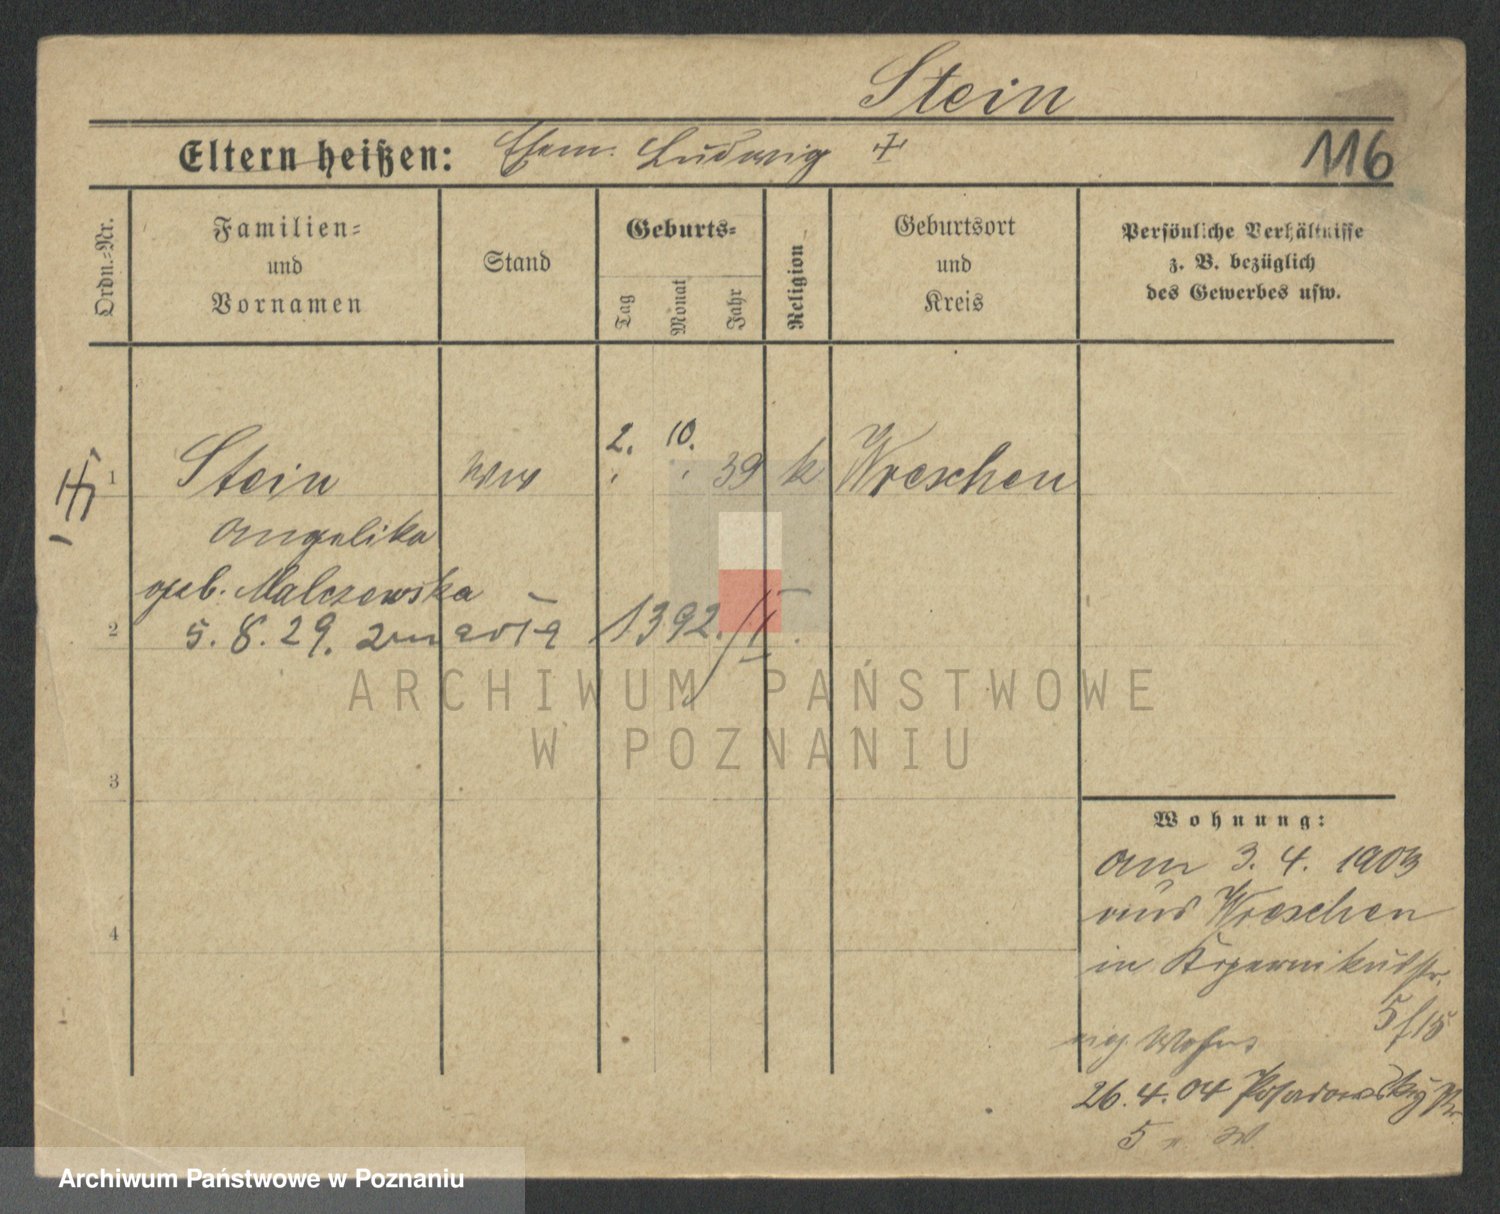 Stein
Eltern heißen: Ehem. Ludwig +
116
Ordn.-Nr.
Familien-
und
Vornamen
Stand
Geburts-
Tag
Monat
Jahr
Religion
Geburtsort
und
Kreis
Persönliche Verhältnisse
z. B. bezüglich
des Gewerbes usw.
1 Stein Ww 2. 10. 39 k Wreschen
Angelika
geb. Malczewska
2 5. 8. 29. zmarła 1392./II.
ARCHIWUM PAŃSTWOWE
W POZNANIU
3
Wohnung:
am 3. 4. 1903
aus Wreschen
4
in Kopernikusstr.
5/15
eig Wohng
26.4.04 Posadowskystr.
5 W.
Archiwum Państwowe w Poznaniu